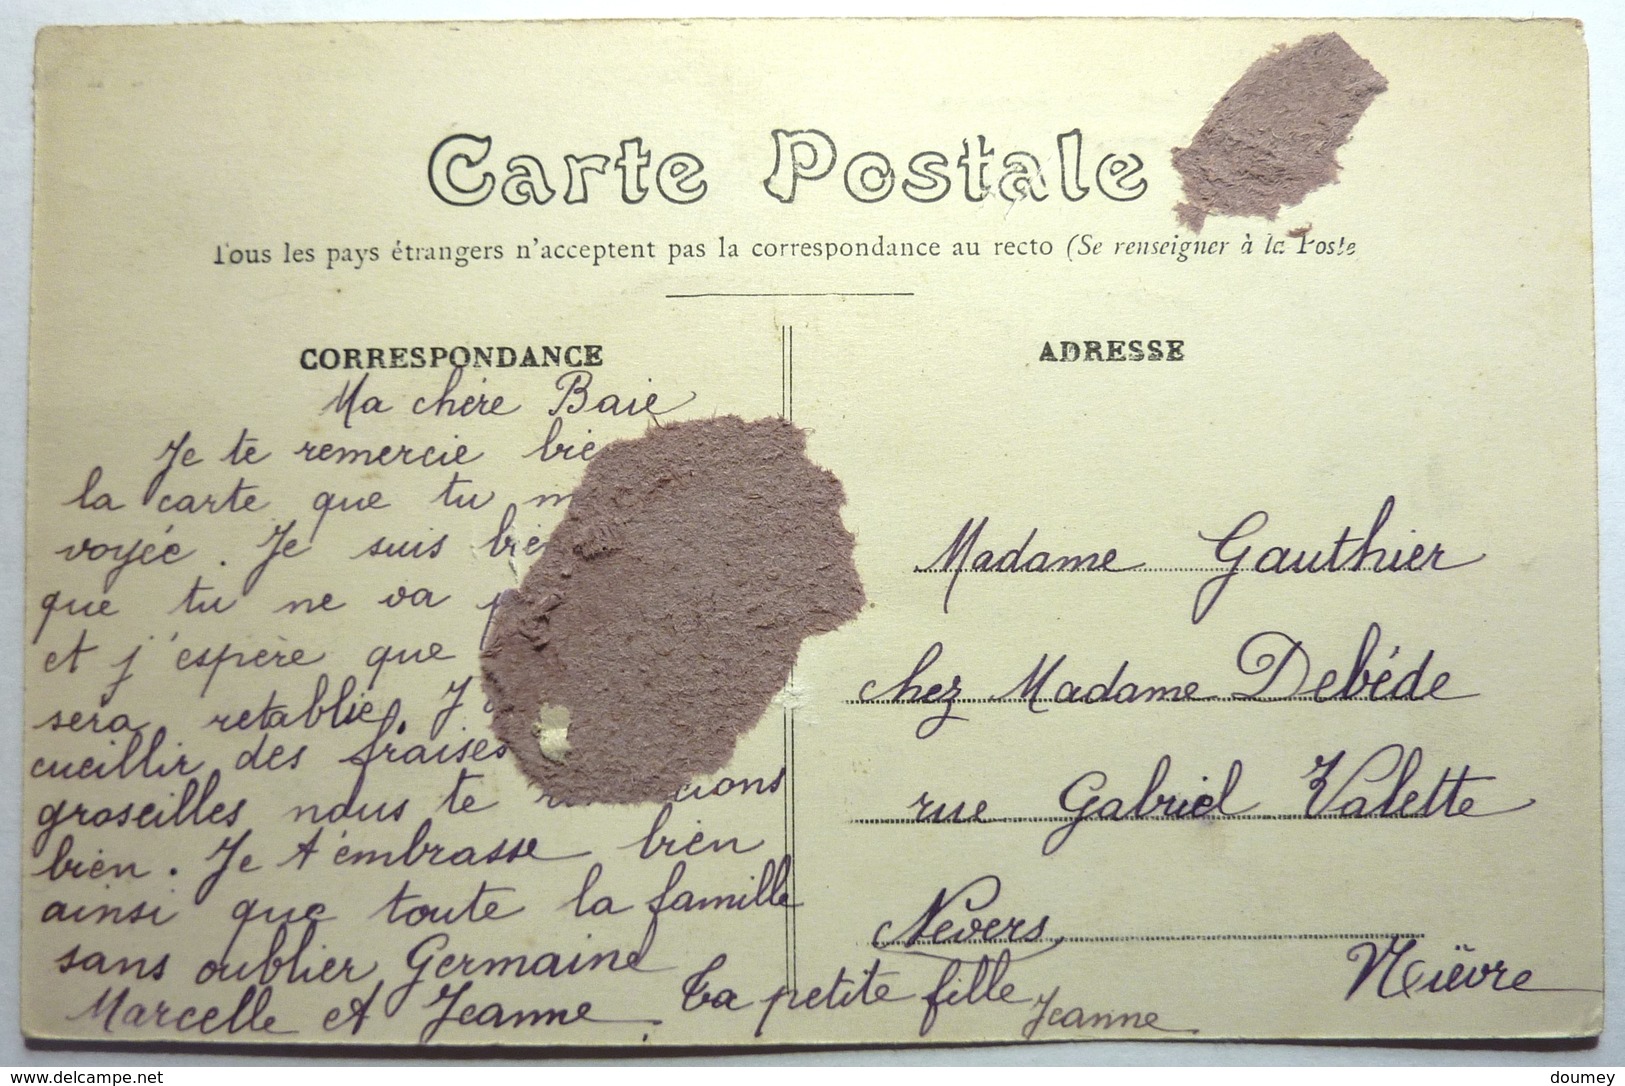 Carte Postale
Tous les pays étrangers n'acceptent pas la correspondance au recto (Se renseigner à la Poste
CORRESPONDANCE
Ma chère Baie
Je te remercie bie
la carte que tu m
voyée. Je suis bie
que tu ne va
et j'espère que
sera retablie. J
cueillir des fraises
groseilles nous te cions
bien. Je t'embrasse bien
ainsi que toute la famille
sans oublier Germaine
Marcelle et Jeanne.
Ta petite fille
Jeanne
ADRESSE
Madame Gauthier
chez Madame Debéde
rue Gabriel Valette
Nevers
Nièvre
delcampe.net
doumey